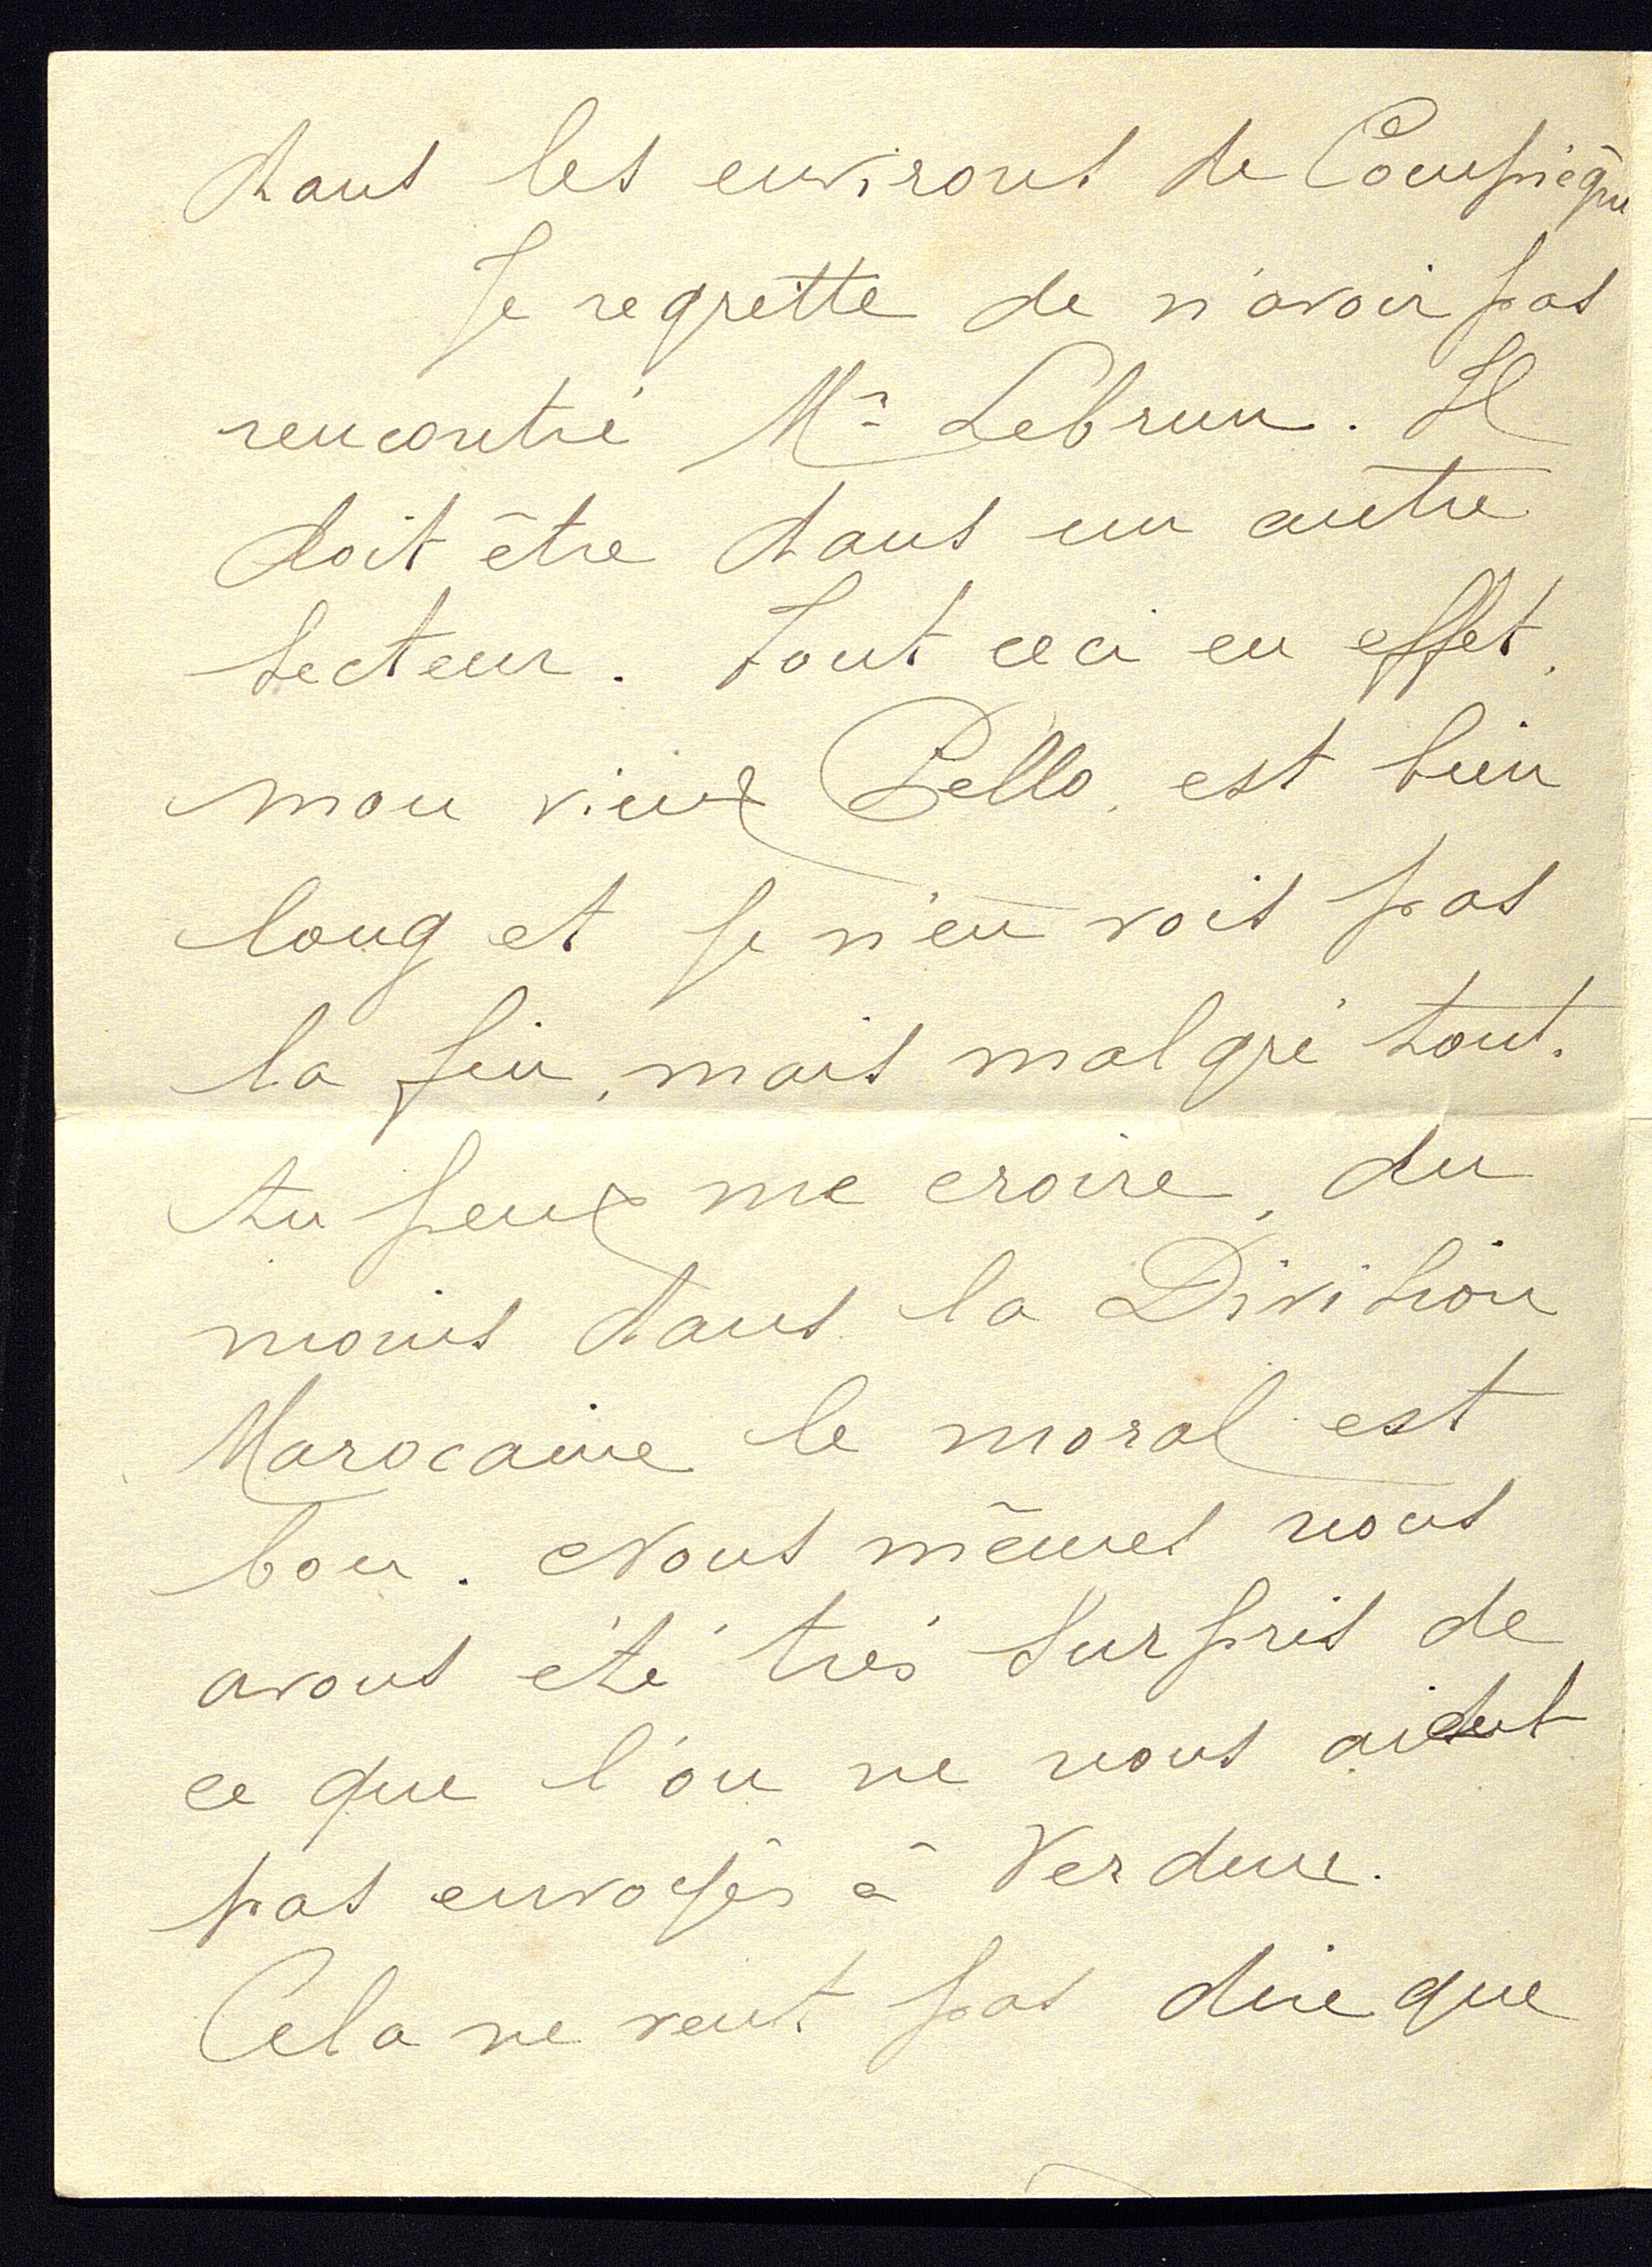 dans les environs de Compiègne
Je regrette de n'avoir pas
rencontré Mr Lebrun. Il
doit être dans un autre
secteur. Tout ceci en effet,
mon vieux Bello, est bien
long et je n'en vois pas
la fin, mais malgré tout,
tu peux me croire, du
moins dans la Division
Marocaine le moral est
bon. Nous mêmes nous
avons été très surpris de
ce que l'on ne nous
pas envoyés à Verdun.
Cela ne veut pas dire que